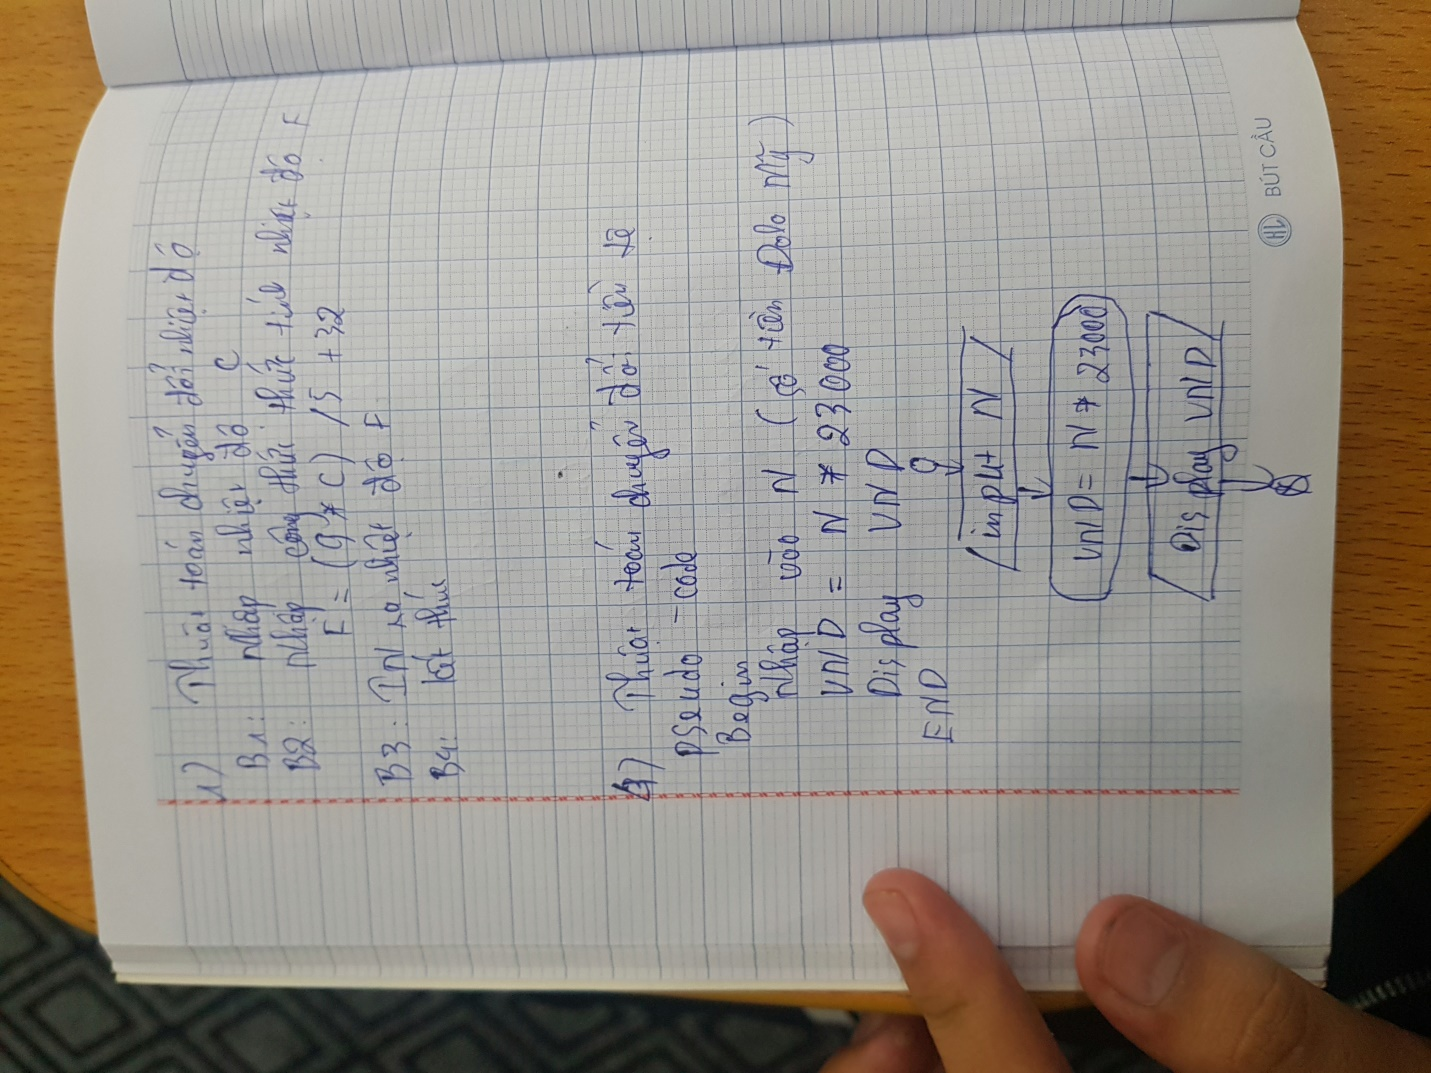 1) Thuật toán chuyển đổi nhiệt độ
B1: nhập nhiệt độ C
B2: nhập công thức thức tính nhiệt độ F
F = (9 * C) /5 + 32
B3: IN ra nhiệt độ F
B4: kết thúc
Thuật toán chuyển đổi tiền tệ
Pseudo - code
Begin
nhập vào N (số tiền Đola Mỹ)
VND = N * 23000
Display VND
END
input N
VND = N * 23000
Display VND
HL BÚT CẦU